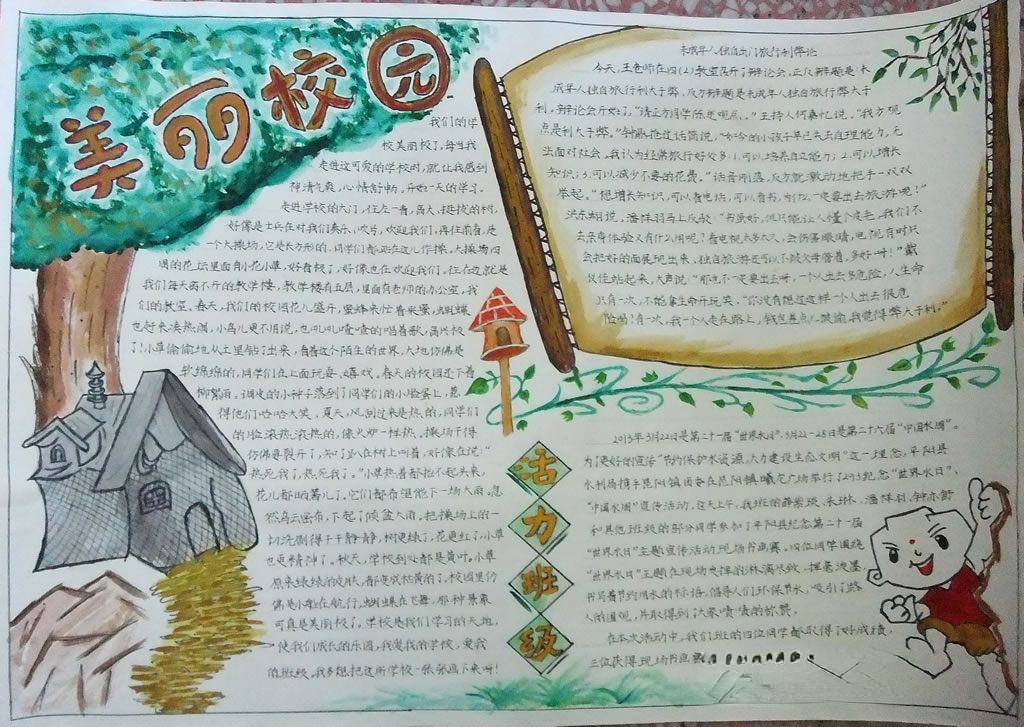 美丽校园
我们的学
校美丽极了，每当我
走进这可爱的学校时，就让我感到
神清气爽，心情舒畅，开始一天的学习。
走进学校的大门，往左一看，高大、挺拔的树，
好像是士兵在对我们奏乐、吹号，欢迎我们，再往前看，是
一个大操场，它是长方形的，同学们都在这儿作操，大操场四
周的花坛里面有小花小草，好看极了，好像也在欢迎我们。往右边就是
我们每天离不开的教学楼，教学楼有五层，里面有老师的办公室，我
们的教室。春天，我们的校园花儿盛开，蜜蜂来忙着采蜜，蝴蝶
也赶来凑热闹，小鸟儿更不用说，也叽叽喳喳的唱着歌，高兴极
了！小草偷偷地从土里钻了出来，看着这个陌生的世界，大地仿佛是
软绵绵的，同学们在上面玩耍、嬉戏。春天的校园还下着
柳絮雨，调皮的小种子落到了同学们的小脸蛋上，惹
得他们哈哈大笑。夏天，风刮过来是热的，同学们
的脸滚热滚热的，像火炉一样热，操场干得
仿佛要裂开了，知了趴在树上叫着，好像在说：“
热死我了，热死我了。”小草热着都抬不起头来，
花儿都晒蔫儿了，它们都希望能下一场大雨，忽
然乌云密布，下起了倾盆大雨，把操场上的一
切洗刷得干干静静，树更绿了，花更红了，小草
也更精神了。秋天，学校到处都是黄叶。小草
原来绿绿的皮肤，都变成枯黄的了，校园里仿
佛是小船在航行，蝴蝶在飞舞，那种景象
可真是美丽极了。学校是我们学习的天地，
使我们成长的乐园，我爱我的学校，爱我
的班级，我多想把这所学校一张张画下来呀！
未成年人独自出门旅行利弊论
今天，王老师在四(2)教室展开了辩论会，正反辩题是：未
成年人独自旅行利大于弊，反方辩题是未成年人独自旅行弊大于
利，辩论会开始了，“请正方同学陈述观点。”主持人何嘉忆说。“我方观
点是利大于弊。”钟 抢过话筒说，“如今的小孩子早已失去自理能力，无
法面对社会，我认为经常旅行好处多：1.可以培养自立能力；2.可以增长
知识；3.可以减少不要的花费。”话音刚落，反方就激动地把手一双双
举起。“想增长知识，可以看电话，可以看书，为什么一定要出去旅游呢！”
洪东 说，潘祥羽马上反驳：“书虽好，但只能让人懂个皮毛，我们不
去亲身体验又有什么用呢？看电视太多太久，会伤害眼睛，电视有时只
会把好的面展现出来，独自旅游还可以不被父母管着，多好呀！”戴
仪佳站起来，大声说：“那也不一定要出去呀，一个人出去多危险，人生命
只有一次，不能拿生命开玩笑，“你没有想过这样一个人出去很危
险吗？有一次，我一个人走在路上，钱包差点儿被偷，我觉得弊大于利。”
活力班级
2013年3月22日是第二十一届“世界水日”，3月22-28日是第二十六届“中国水周”。
为了更好的宣传“节约保护水资源，大力建设生态文明”这一理念，平阳县
水利局携手昆阳镇团委在昆阳镇曙光广场举行了2013纪念“世界水日”、
“中国水周”宣传活动，这天上午，我班的薛紫琰、朱琳、潘祥羽、钟亦
和其他班级的部分同学参加了平阳县纪念第二十一届
“世界水日”主题宣传活动现场书画赛。四位同学围绕
“世界水日”主题在现场发挥的淋漓尽致，挥毫泼墨
书写着节约用水的标语，倡导人们环保节水，吸引了路
人的围观，并取得到大家啧啧的称赞。
在本次活动中，我们班的四位同学都取得了好成绩，
三位获得现场书画赛